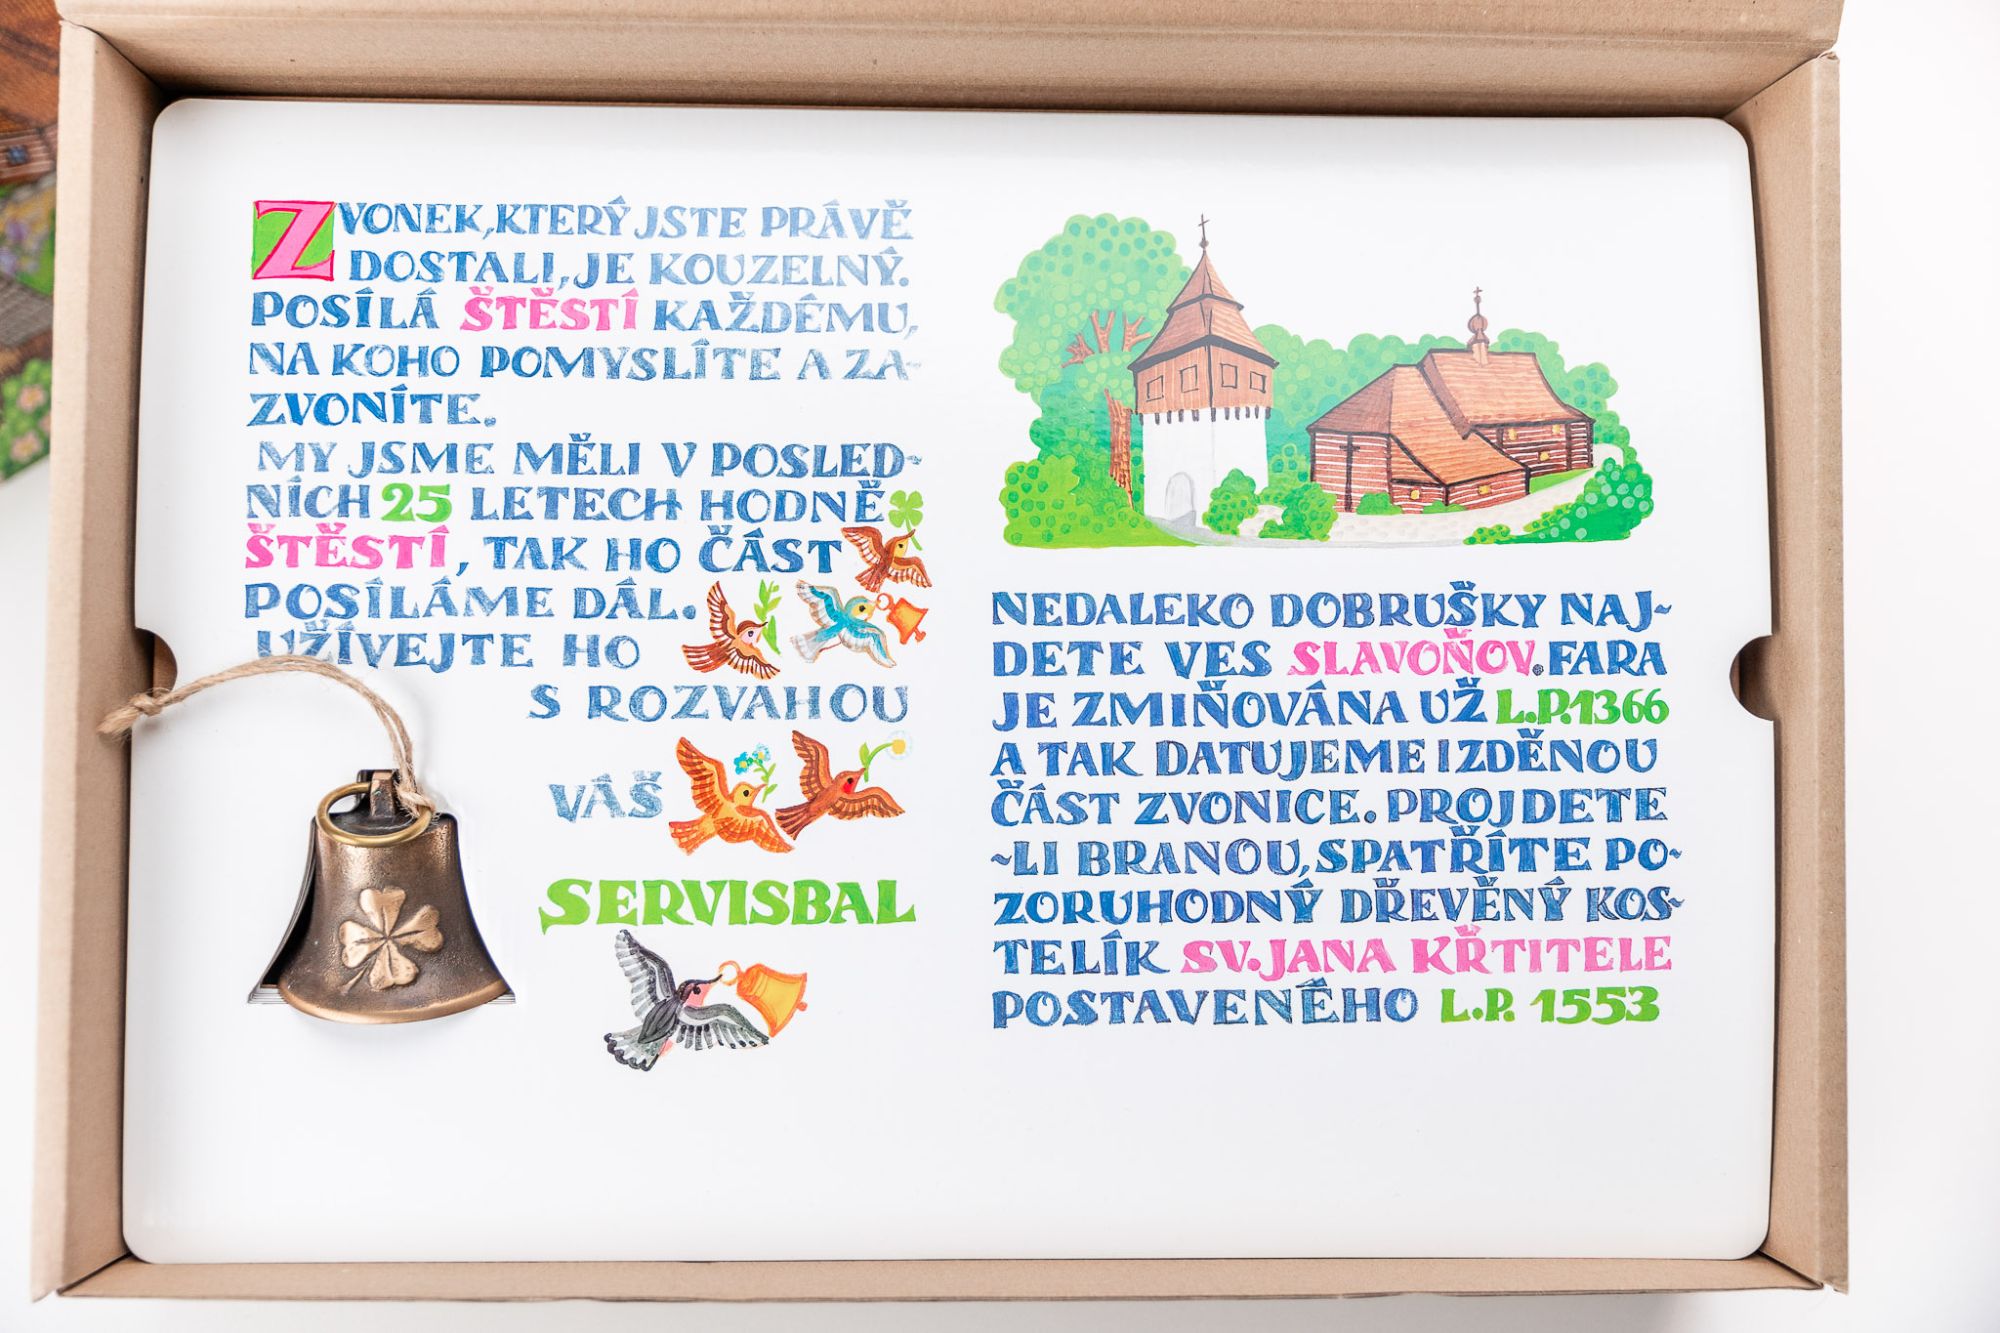 ZVONEK, KTERÝ JSTE PRÁVĚ
DOSTALI, JE KOUZELNÝ.
POSÍLÁ ŠTĚSTÍ KAŽDÉMU,
NA KOHO POMYSLÍTE A ZA-
ZVONÍTE.
MY JSME MĚLI V POSLED-
NÍCH 25 LETECH HODNĚ
ŠTĚSTÍ, TAK HO ČÁST
POSÍLÁME DÁL.
UŽÍVEJTE HO
S ROZVAHOU
VÁŠ
SERVISBAL
NEDALEKO DOBRUŠKY NAJ-
DETE VES SLAVOŇOV. FARA
JE ZMIŇOVÁNA UŽ L.P.1366
A TAK DATUJEME I ZDĚNOU
ČÁST ZVONICE. PROJDETE
-LI BRANOU, SPATŘÍTE PO-
ZORUHODNÝ DŘEVĚNÝ KOS-
TELÍK SV. JANA KŘTITELE
POSTAVENÉHO L.P. 1553